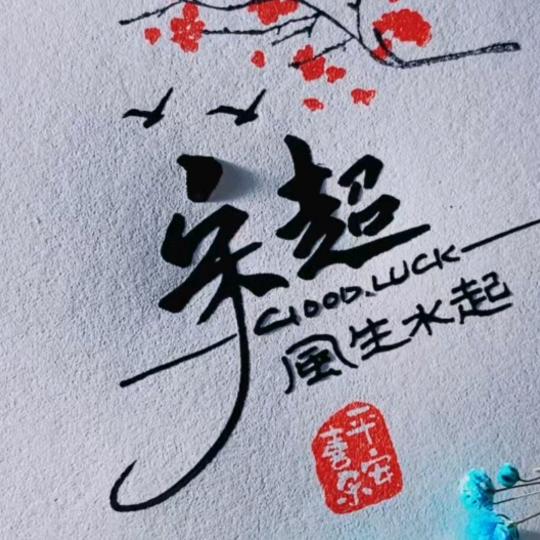 宋超
GOOD.LUCK
風生水起
平安
喜乐